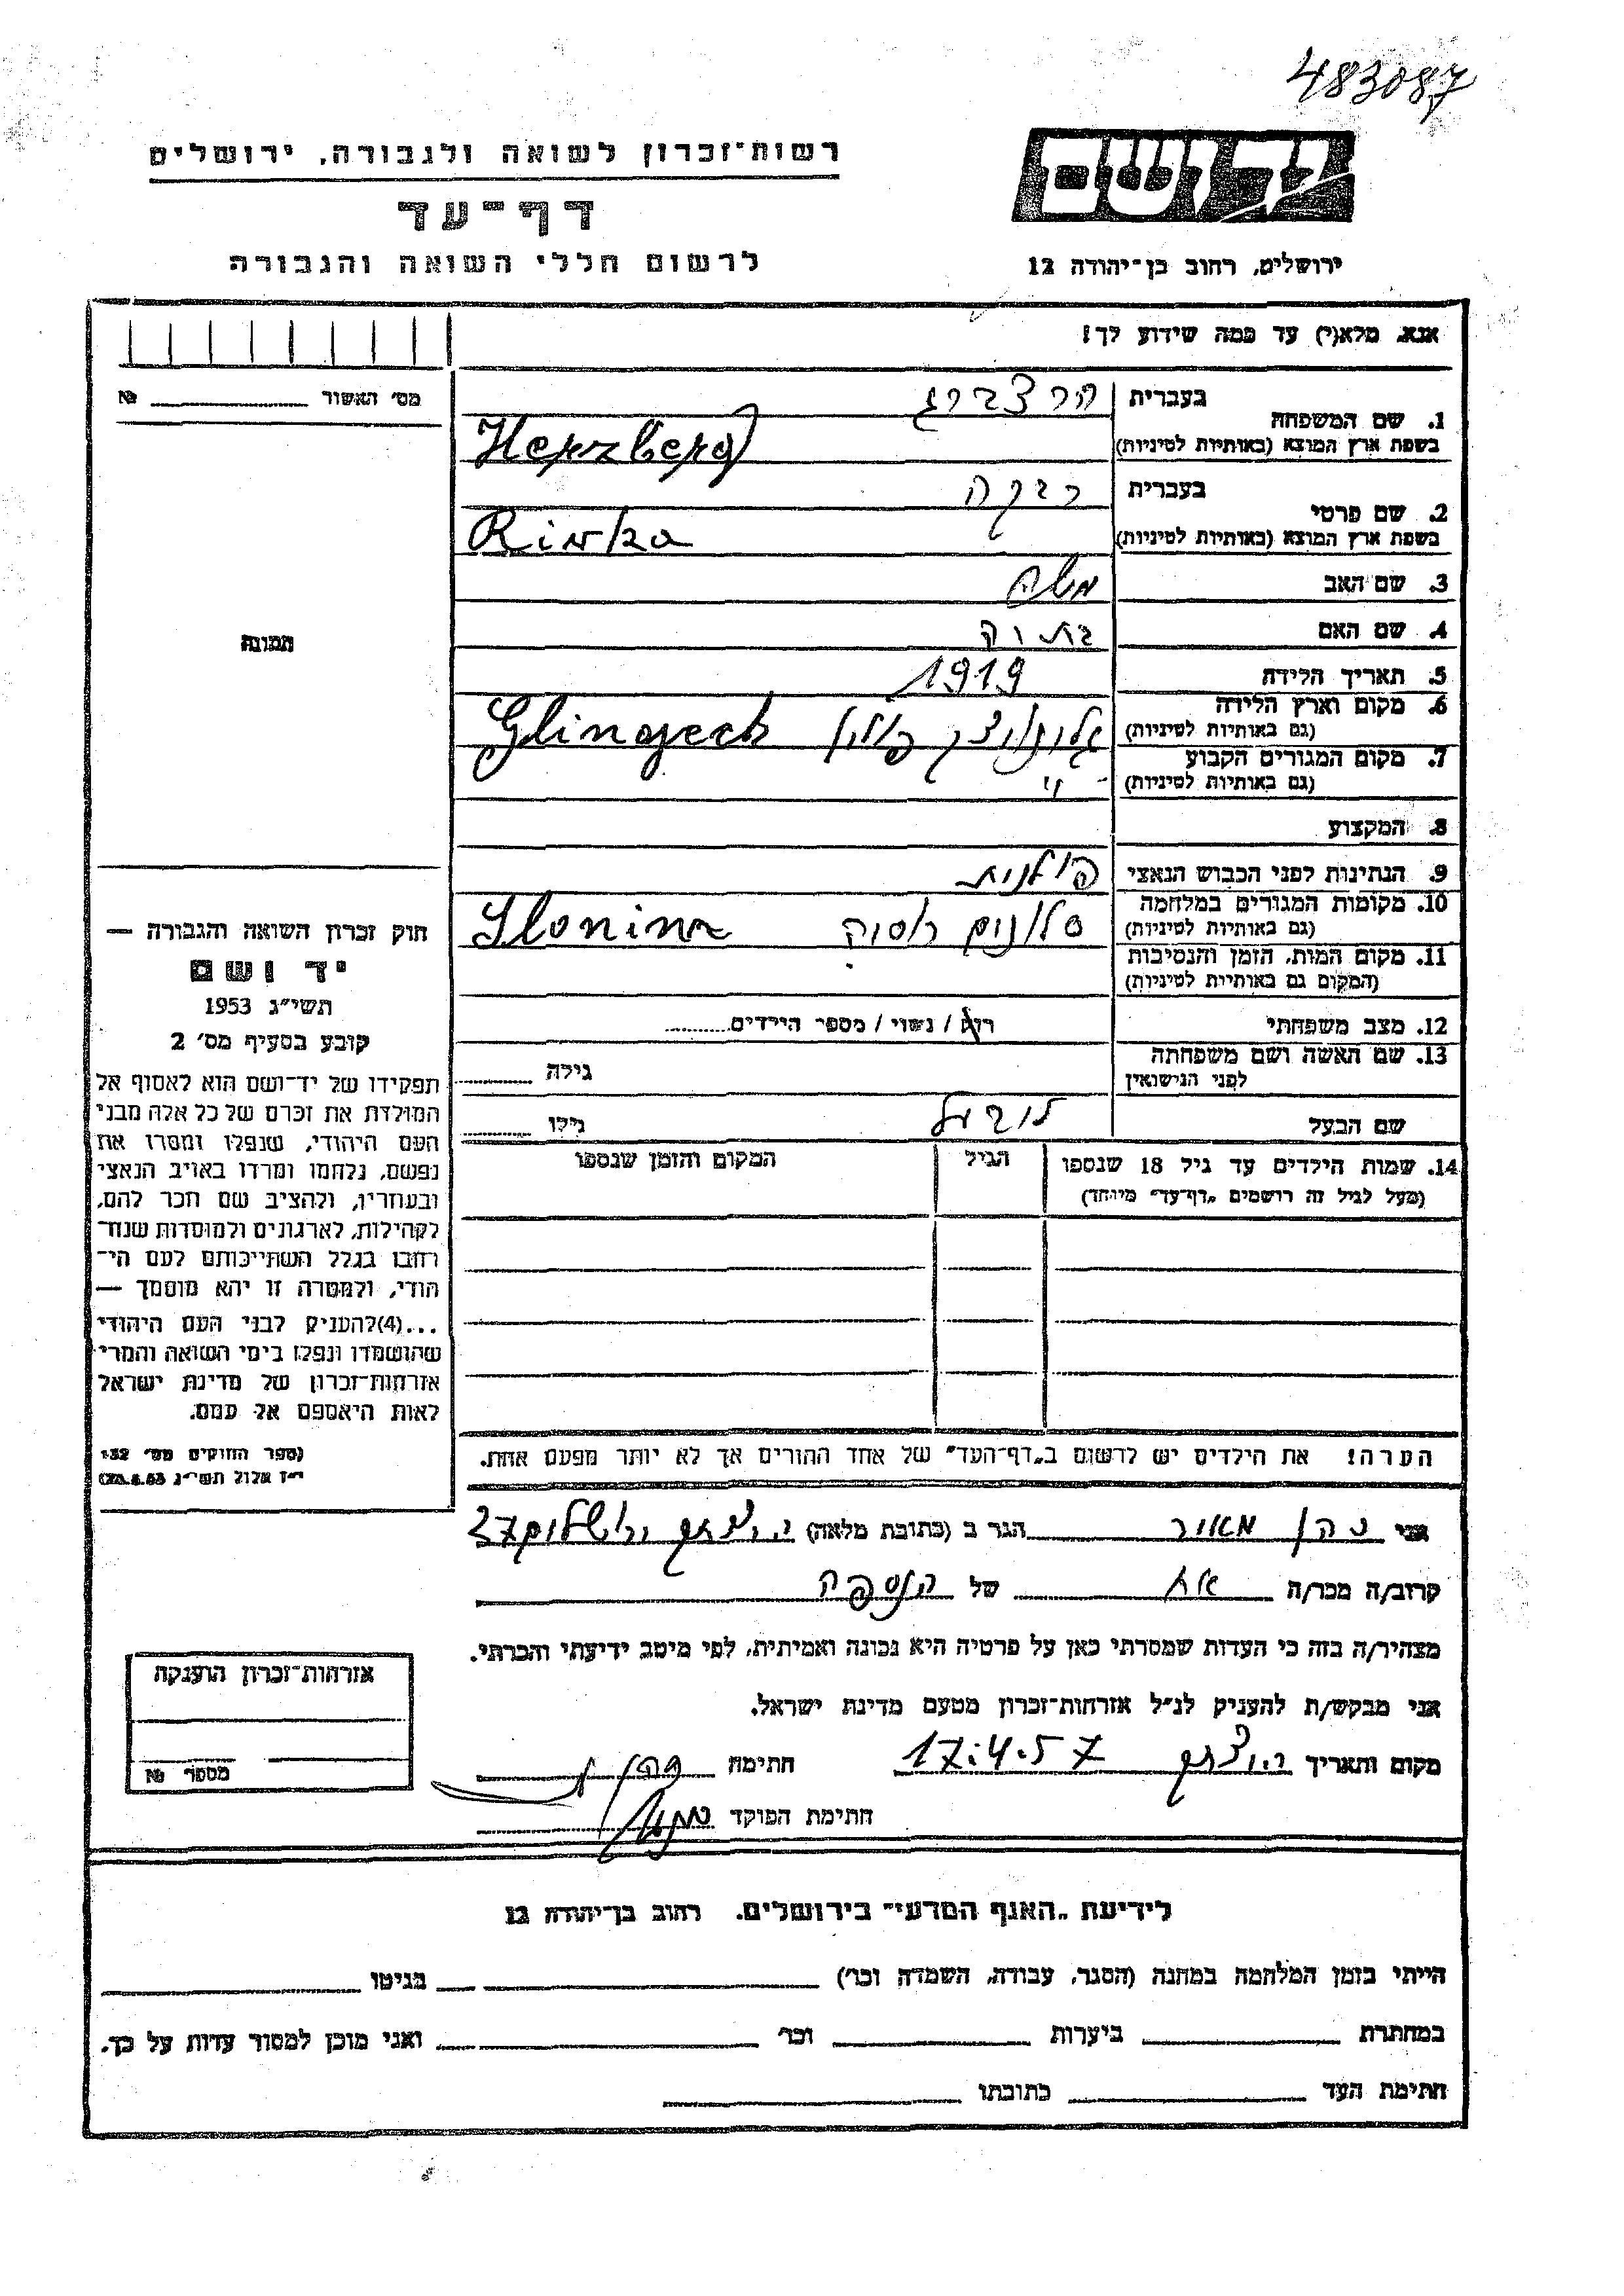 483087
יד ושם
רשות־זכרון לשואה ולגבורה, ירושלים
דף־עד
לרשום חללי השואה והגבורה
ירושלים, רחוב בן־יהודה 12
אנא, מלא(י) עד כמה שידוע לך!
מס׳ האשור №
1. שם המשפחה
בעברית הרצברג
בשפת ארץ המוצא (באותיות לטיניות) Herzberg
2. שם פרטי
בעברית רבקה
בשפת ארץ המוצא (באותיות לטיניות)
3. שם האב משה
4. שם האם
5. תאריך הלידה 1919
6. מקום וארץ הלידה
(גם באותיות לטיניות) פולין Glinojeck
7. מקום המגורים הקבוע
(גם באותיות לטיניות) - " -
8. המקצוע
9. הנתינות לפני הכבוש הנאצי פולנית
10. מקומות המגורים במלחמה
(גם באותיות לטיניות) סלונים רוסיה
11. מקום המות, הזמן והנסיבות
(המקום גם באותיות לטיניות)
12. מצב משפחתי רוק / נשוי / מספר הילדים
13. שם האשה ושם משפחתה
לפני הנישואין גילה
שם הבעל גילו
14. שמות הילדים עד גיל 18 שנספו הגיל המקום והזמן שנספו
(מעל לגיל זה רושמים „דף־עד״ מיוחד)
הערה! את הילדים יש לרשום ב„דף־העד״ של אחד ההורים אך לא יותר מפעם אחת.
תמונה
חוק זכרון השואה והגבורה —
יד ושם
תשי״ג 1953
קובע בסעיף מס׳ 2
תפקידו של יד־ושם הוא לאסוף אל
המולדת את זכרם של כל אלה מבני
העם היהודי, שנפלו ומסרו את
נפשם, נלחמו ומרדו באויב הנאצי
ובעוזריו, ולהציב שם וזכר להם,
לקהילות, לארגונים ולמוסדות שנח־
רבו בגלל השתייכותם לעם הי־
הודי, ולמטרה זו יהא מוסמך —
...(4)להעניק לבני העם היהודי
שהושמדו ונפלו בימי השואה והמרי
אזרחות־זכרון של מדינת ישראל
לאות היאספם אל עמם.
(ספר החוקים מס׳ 132
י״ז אלול תשי״ג 28.8.53)
אני מאור הגר ב (כתובת מלאה) 37
קרוב/ה מכר/ה אח של הנספה
מצהיר/ה בזה כי העדות שמסרתי כאן על פרטיה היא נכונה ואמיתית, לפי מיטב ידיעתי והכרתי.
אני מבקש/ת להעניק לנ״ל אזרחות־זכרון מטעם מדינת ישראל.
מקום ותאריך 17.4.57 חתימה
חתימת הפוקד
אזרחות־זכרון הוענקה
מספר №
לידיעת „האגף המדעי״ בירושלים, רחוב בן־יהודה 12
הייתי בזמן המלחמה במחנה (הסגר, עבודה, השמדה וכו׳) בגיטו
במחתרת ביערות וכו׳ ואני מוכן למסור עדות על כך.
חתימת העד כתובתו